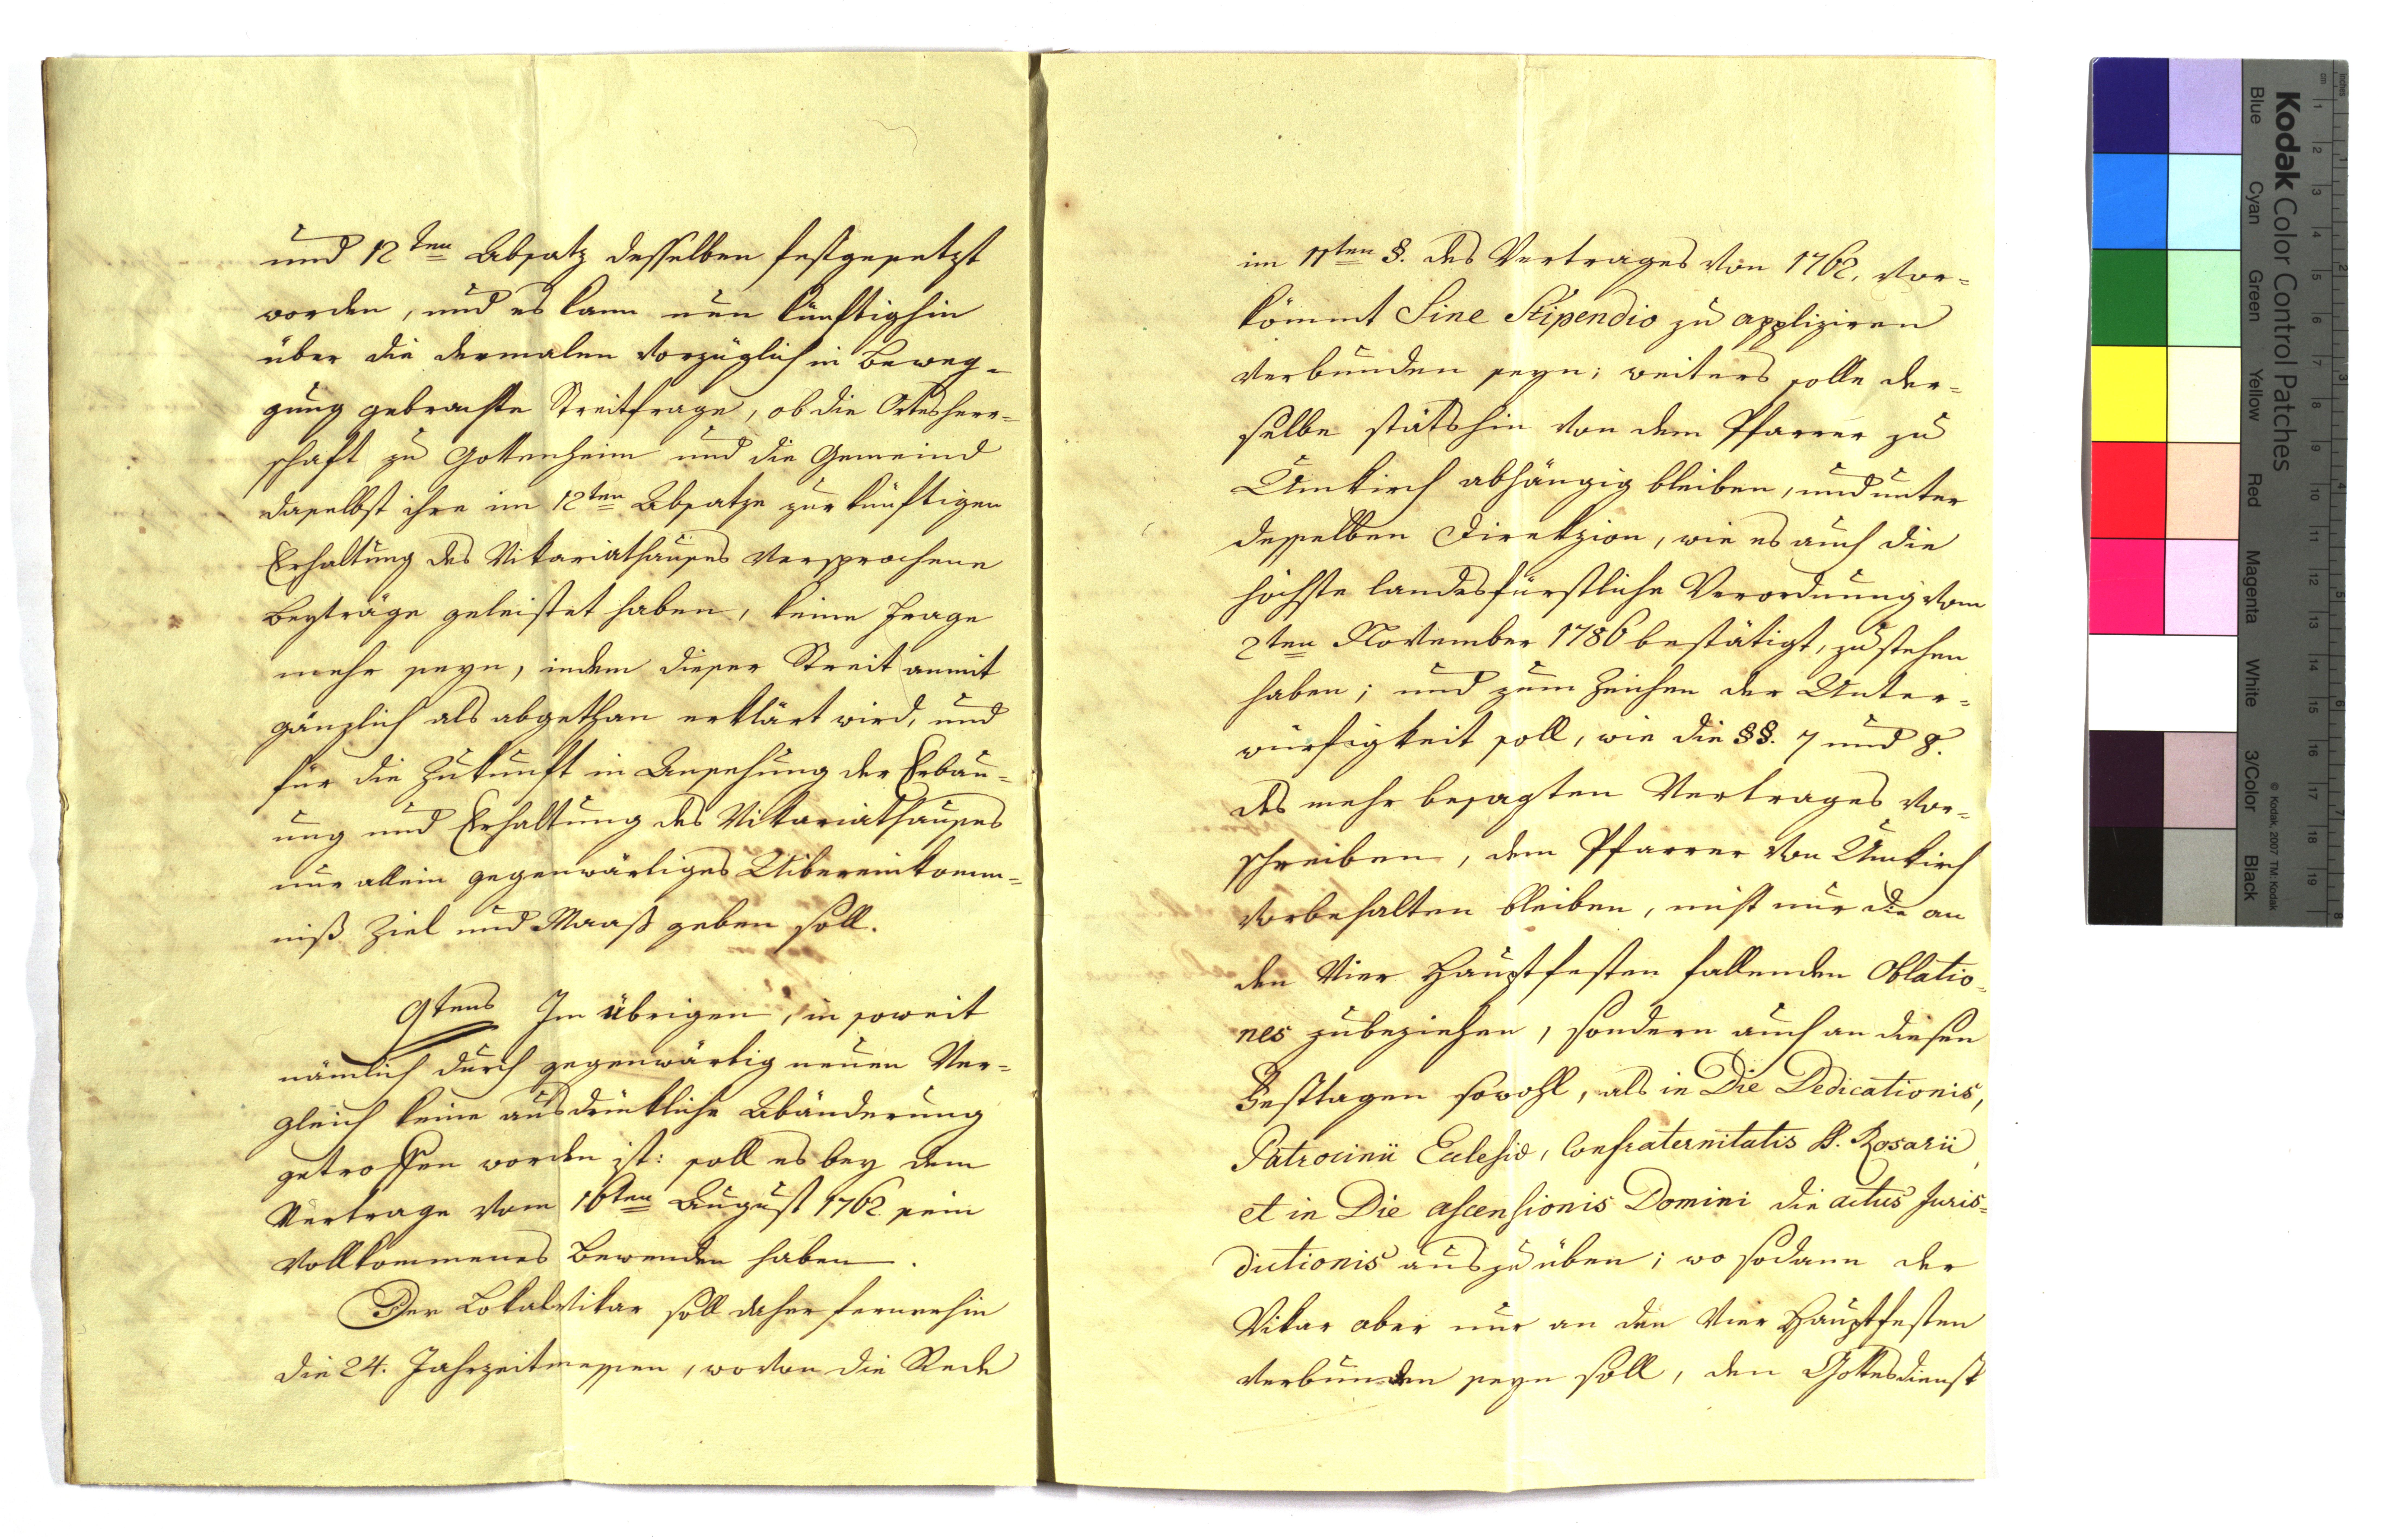 und 12ten Absatz desselben festgesetzt
worden, und es kann nun künftighin
über die dermalen vorzüglich in Beweg-
gung gebrachte Streitfrage, ob die Ortsherr-
schaft zu Gottenheim und die Gemeind
daselbst ihre im 12ten Absatze zur künftigen
Erhaltung des Vikariathauses versprochene
Beyträge geleistet haben, keine Frage
mehr seyn, indem dieser Streit anmit
gänzlich als abgethan erklärt wird, und
für die Zukunft in Ansehung der Erbau-
ung und Erhaltung des Vikariathauses
nur allein gegenwärtiges Uibereinkomm-
niß Ziel und Maaß geben soll.
9tens Im übrigen, in soweit
nämlich durch gegenwärtig neuen Ver-
gleich keine ausdrückliche Abänderung
getroffen worden ist: soll es bey dem
Vertrage vom 16ten August 1762 sein
vollkommenes Bewenden haben.
Der Lokalvikar soll daher fernerhin
die 24. Jahrzeitmessen, wovon die Rede
im 11ten §. des Vertrages von 1762. vor-
kömmt Sine Stipendio zu appliziren
verbunden seyn; weiters solle der-
selbe stätshin von dem Pfarrer zu
Umkirch abhängig bleiben, und unter
desselben Direkzion, wie es auch die
höchste landesfürstliche Verordnung vom
2ten November 1786 bestätigt, zu stehen
haben; und zum Zeichen der Unter-
würfigkeit soll, wie die §§. 7 und 8.
des mehr besagten Vertrages vor-
schreiben, dem Pfarrer von Umkirch
vorbehalten bleiben, nicht nur die an
den vier Hauptfesten fallenden Oblatio-
nes zubeziehen, sondern auch an diesen
Festtagen sowohl, als in Die Dedicationis,
Patrocinii Ecclesiæ, Confraternitatis SS. Rosarii,
et in Die ascensionis Domini die actus Juris-
dictionis auszuüben; wo sodann der
Vikar aber nur an den vier Hauptfesten
verbunden seyn soll, den Gottesdienst
Kodak Color Control Patches
© Kodak, 2007 TM: Kodak
Blue
Cyan
Green
Yellow
Red
Magenta
White
3/Color
Black
cm 1 2 3 4 5 6 7 8 9 10 11 12 13 14 15 16 17 18 19
inches 1 2 3 4 5 6 7 8